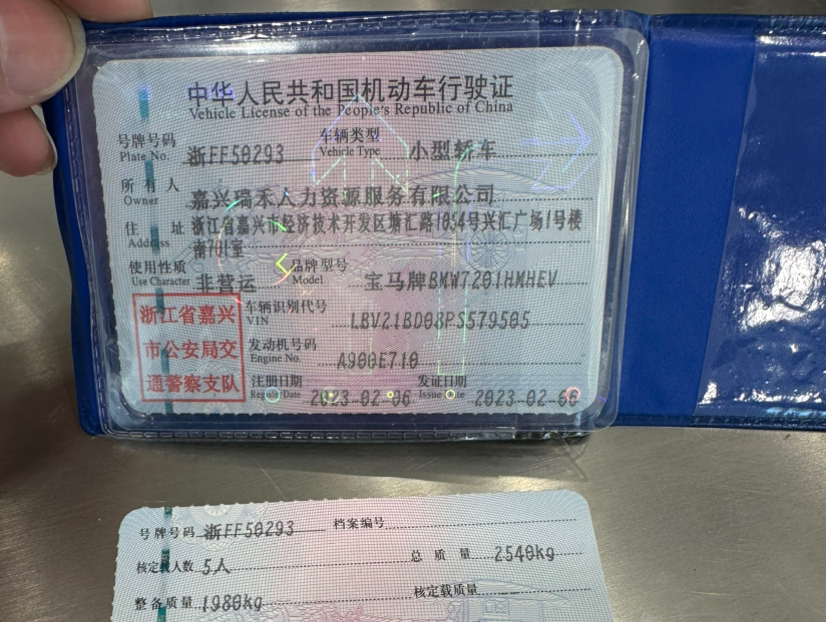 中华人民共和国机动车行驶证
Vehicle License of the People's Republic of China
号牌号码 Plate No. 浙FF50293 车辆类型 Vehicle Type 小型轿车
所有人 Owner 嘉兴瑞禾人力资源服务有限公司
住址 Address 浙江省嘉兴市经济技术开发区塘汇路1054号兴汇广场1号楼
南701室
使用性质 Use Character 非营运 品牌型号 Model 宝马牌BMW7201HMHEV
浙江省嘉兴
市公安局交
通警察支队
车辆识别代号 VIN LBV21BD08PS579505
发动机号码 Engine No. A900E710
注册日期 Register Date 2023-02-06 发证日期 Issue Date 2023-02-06
号牌号码 浙FF50293 档案编号
核定载人数 5人 总质量 2540kg
整备质量 1980kg 核定载质量